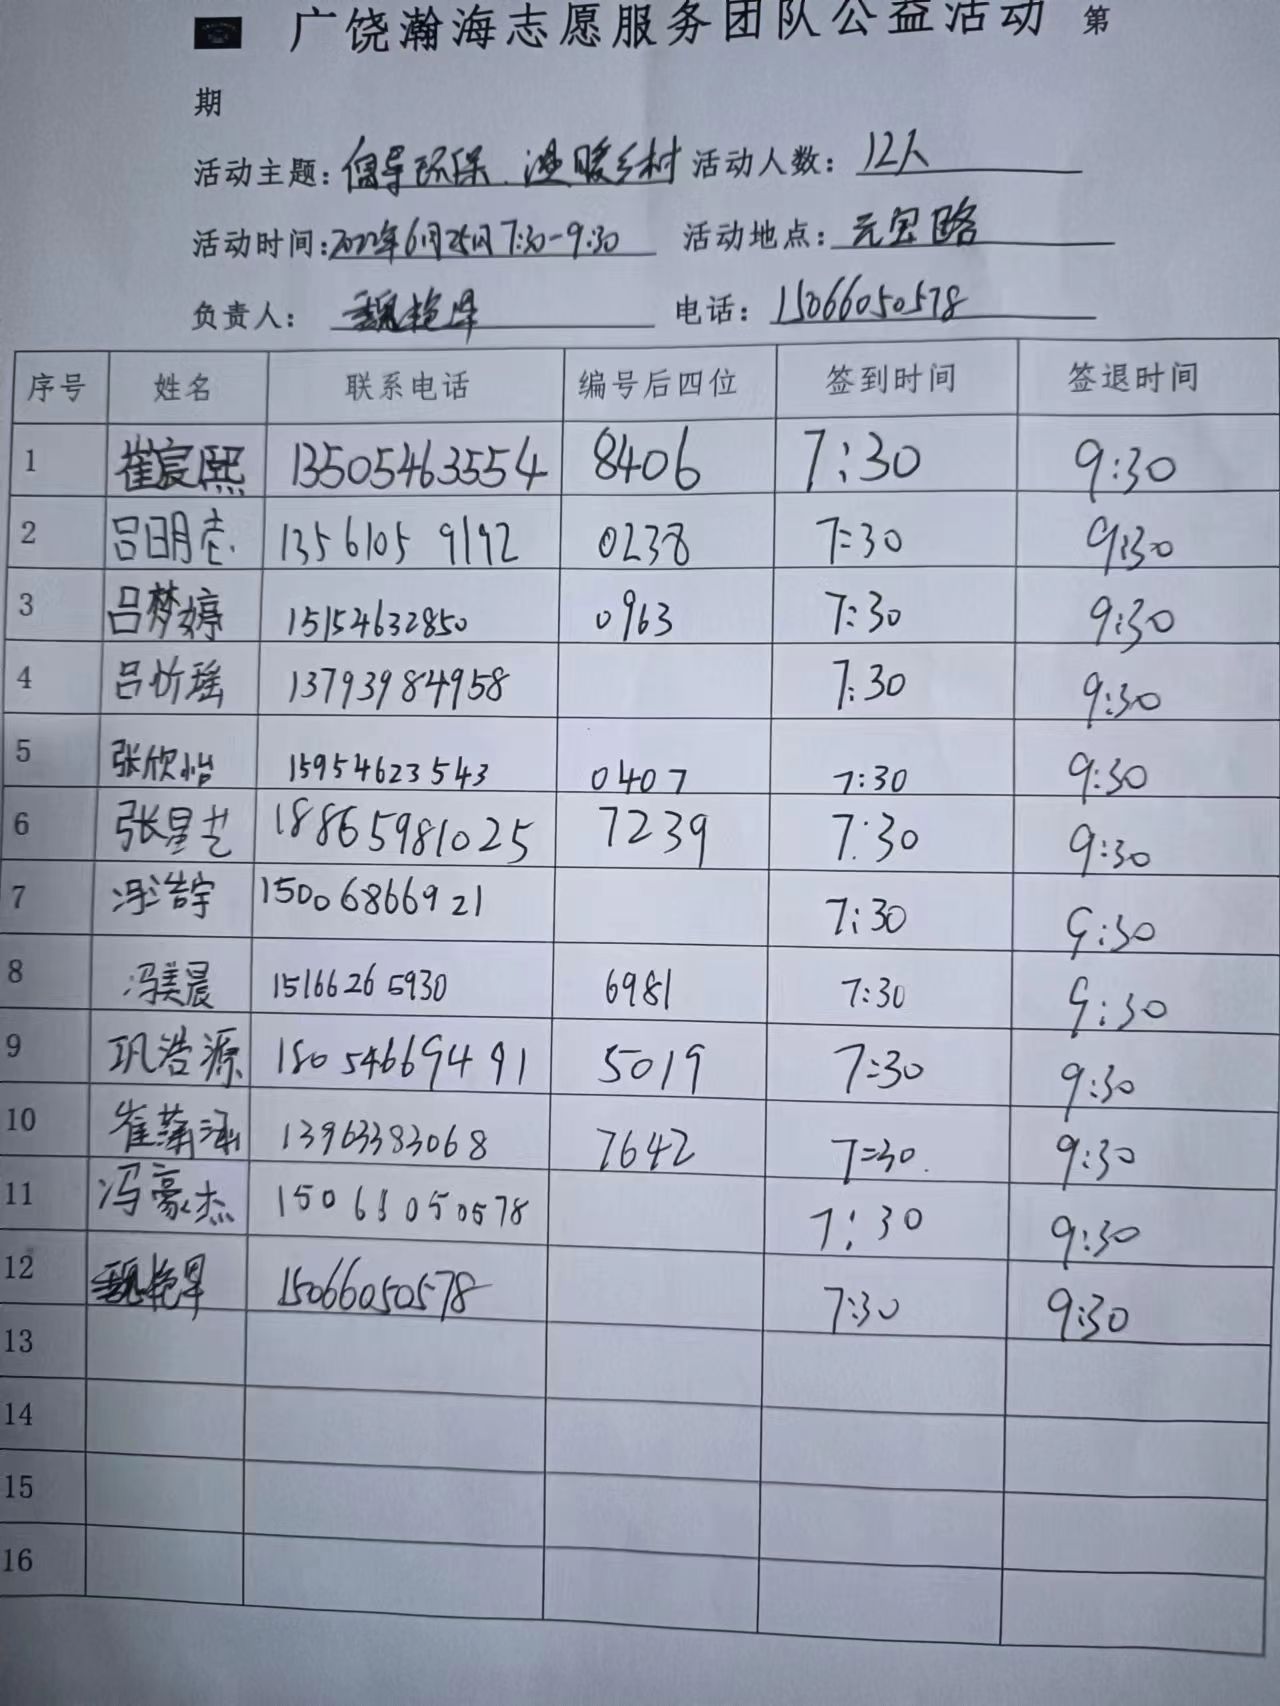 广饶瀚海志愿服务团队公益活动 第
期
活动主题: 倡导环保、温暖乡村 活动人数: 12人
活动时间: 2022年6月25日 7:30-9:30 活动地点: 元宝路
负责人: 魏艳 电话: 15066050578
序号 姓名 联系电话 编号后四位 签到时间 签退时间
1 崔宸熙 13505463554 8406 7:30 9:30
2 吕明志 13561059192 0238 7:30 9:30
3 吕梦婷 15154632850 0963 7:30 9:30
4 吕忻瑶 13793984958 7:30 9:30
5 张欣怡 15954623543 0407 7:30 9:30
6 张星艺 18865981025 7239 7:30 9:30
7 冯浩宇 15006866921 7:30 9:30
8 冯美晨 15166265930 6981 7:30 9:30
9 巩浩源 18054669491 5019 7:30 9:30
10 崔涵 13963383068 7642 7:30 9:30
11 冯豪杰 7:30 9:30
12 魏艳 15066050578 7:30 9:30
13
14
15
16